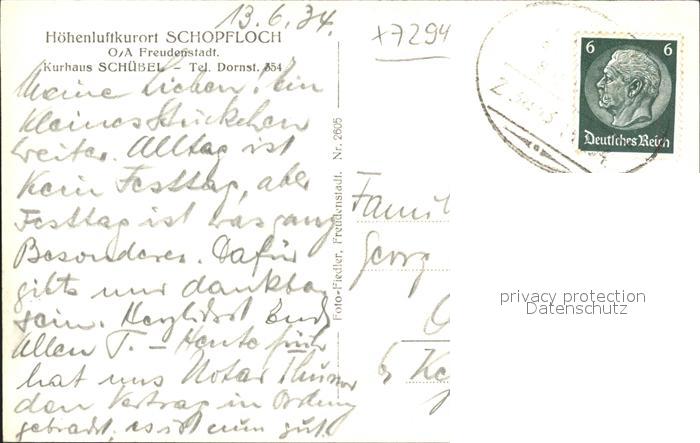 13.6.34.
Höhenluftkurort SCHOPFLOCH
O/A Freudenstadt.
Kurhaus SCHÜBEL — Tel. Dornst. 354
Meine Lieben! Ein
kleines Stückchen
weiter. Alltag ist
kein Festtag, aber
Festtag ist was ganz
Besonderes. Dafür
gilts nur dankbar
sein. Herzlichst Euch
Allen T. — Heute früh
hat uns Notar
den Vertrag in Ordnung
gebracht, es ist nun gut.
Foto-Fiedler, Freudenstadt. Nr. 2605
x7294
6 6
Deutsches Reich
Famil
Georg
b Ke
privacy protection
Datenschutz